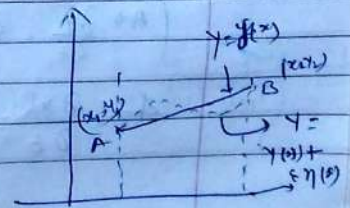 y = y(x)
(x₂, y₂)
B
(x₁, y₁)
A
Y =
y(x) +
ε η(x)